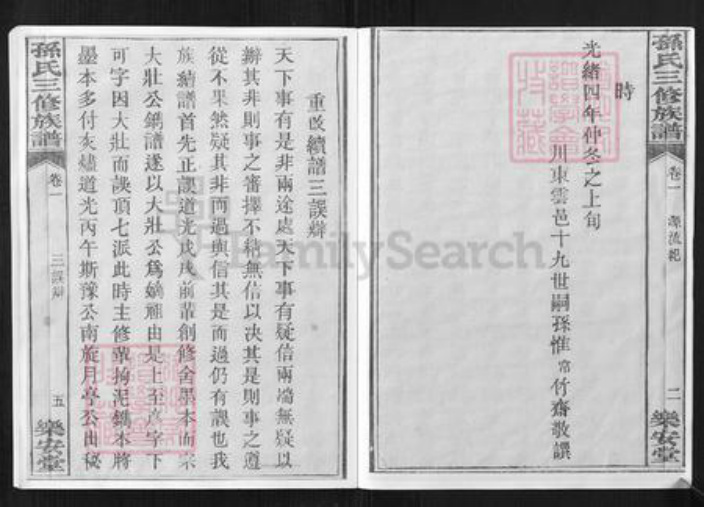 孫氏三修族譜
卷一
源流紀
二
樂安堂
時
光緒四年仲冬之上旬
川東雲邑十九世嗣孫惟常竹齋敬譔
重改續譜三誤辯
天下事有是非兩途處天下事有疑信兩端無疑以
辯其非則事之審擇不精無信以决其是則事之遵
從不果然疑其非而過與信其是而過仍有誤也我
族續譜首先正誤道光戊戌前輩創修舍墨本而宗
大壯公鐫譜遂以大壯公為嫡祖由是上至 字下
可字因大壯而誤頂七派此時主修輩拘泥鐫本將
墨本多付灰燼道光丙午斯豫公南旋月亭公出秘
孫氏三修族譜
卷一
三誤辯
五
樂安堂
FamilySearch